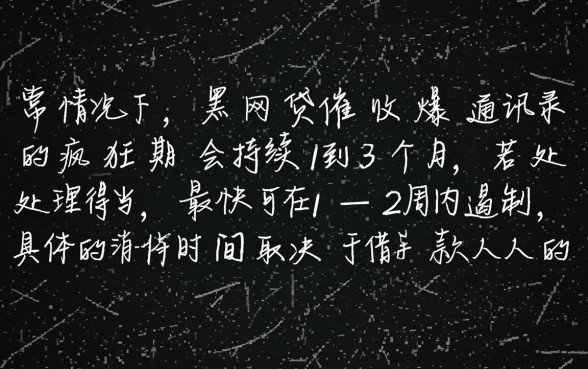 常情况下，黑网贷催收爆通讯录
的疯狂期会持续1到3个月，若处
处理得当，最快可在1—2周内遏制，
具体的消停时间取决于借 款人人的